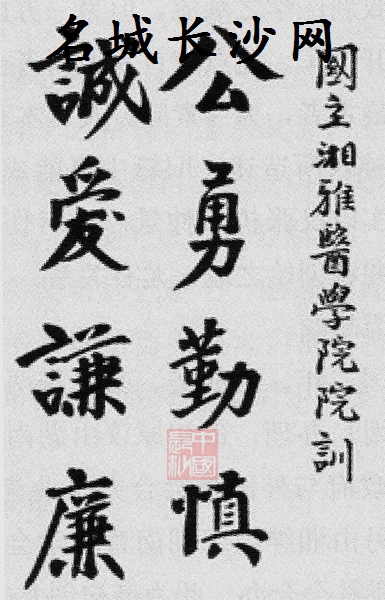 名城长沙网
國立湘雅醫學院院訓
公勇勤慎
誠愛謙廉
中國
長沙